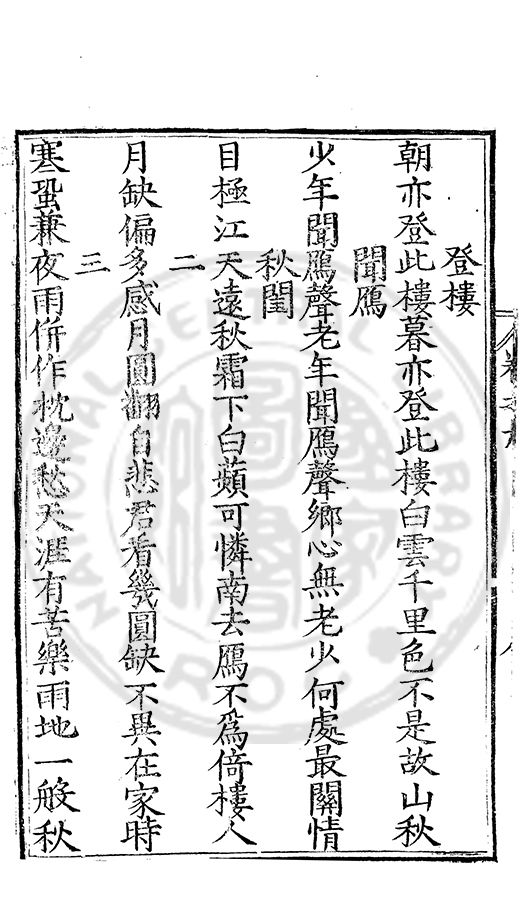 登樓
朝亦登此樓暮亦登此樓白雲千里色不是故山秋
聞鴈
少年聞鴈聲老年聞鴈聲鄉心無老少何處最關情
秋閨
目極江天遠秋霜下白蘋可憐南去鴈不爲倚樓人
二
月缺偏多感月圓翻自悲君看幾圓缺不異在家時
三
寒蛩兼夜雨併作枕邊愁天涯有苦樂兩地一般秋